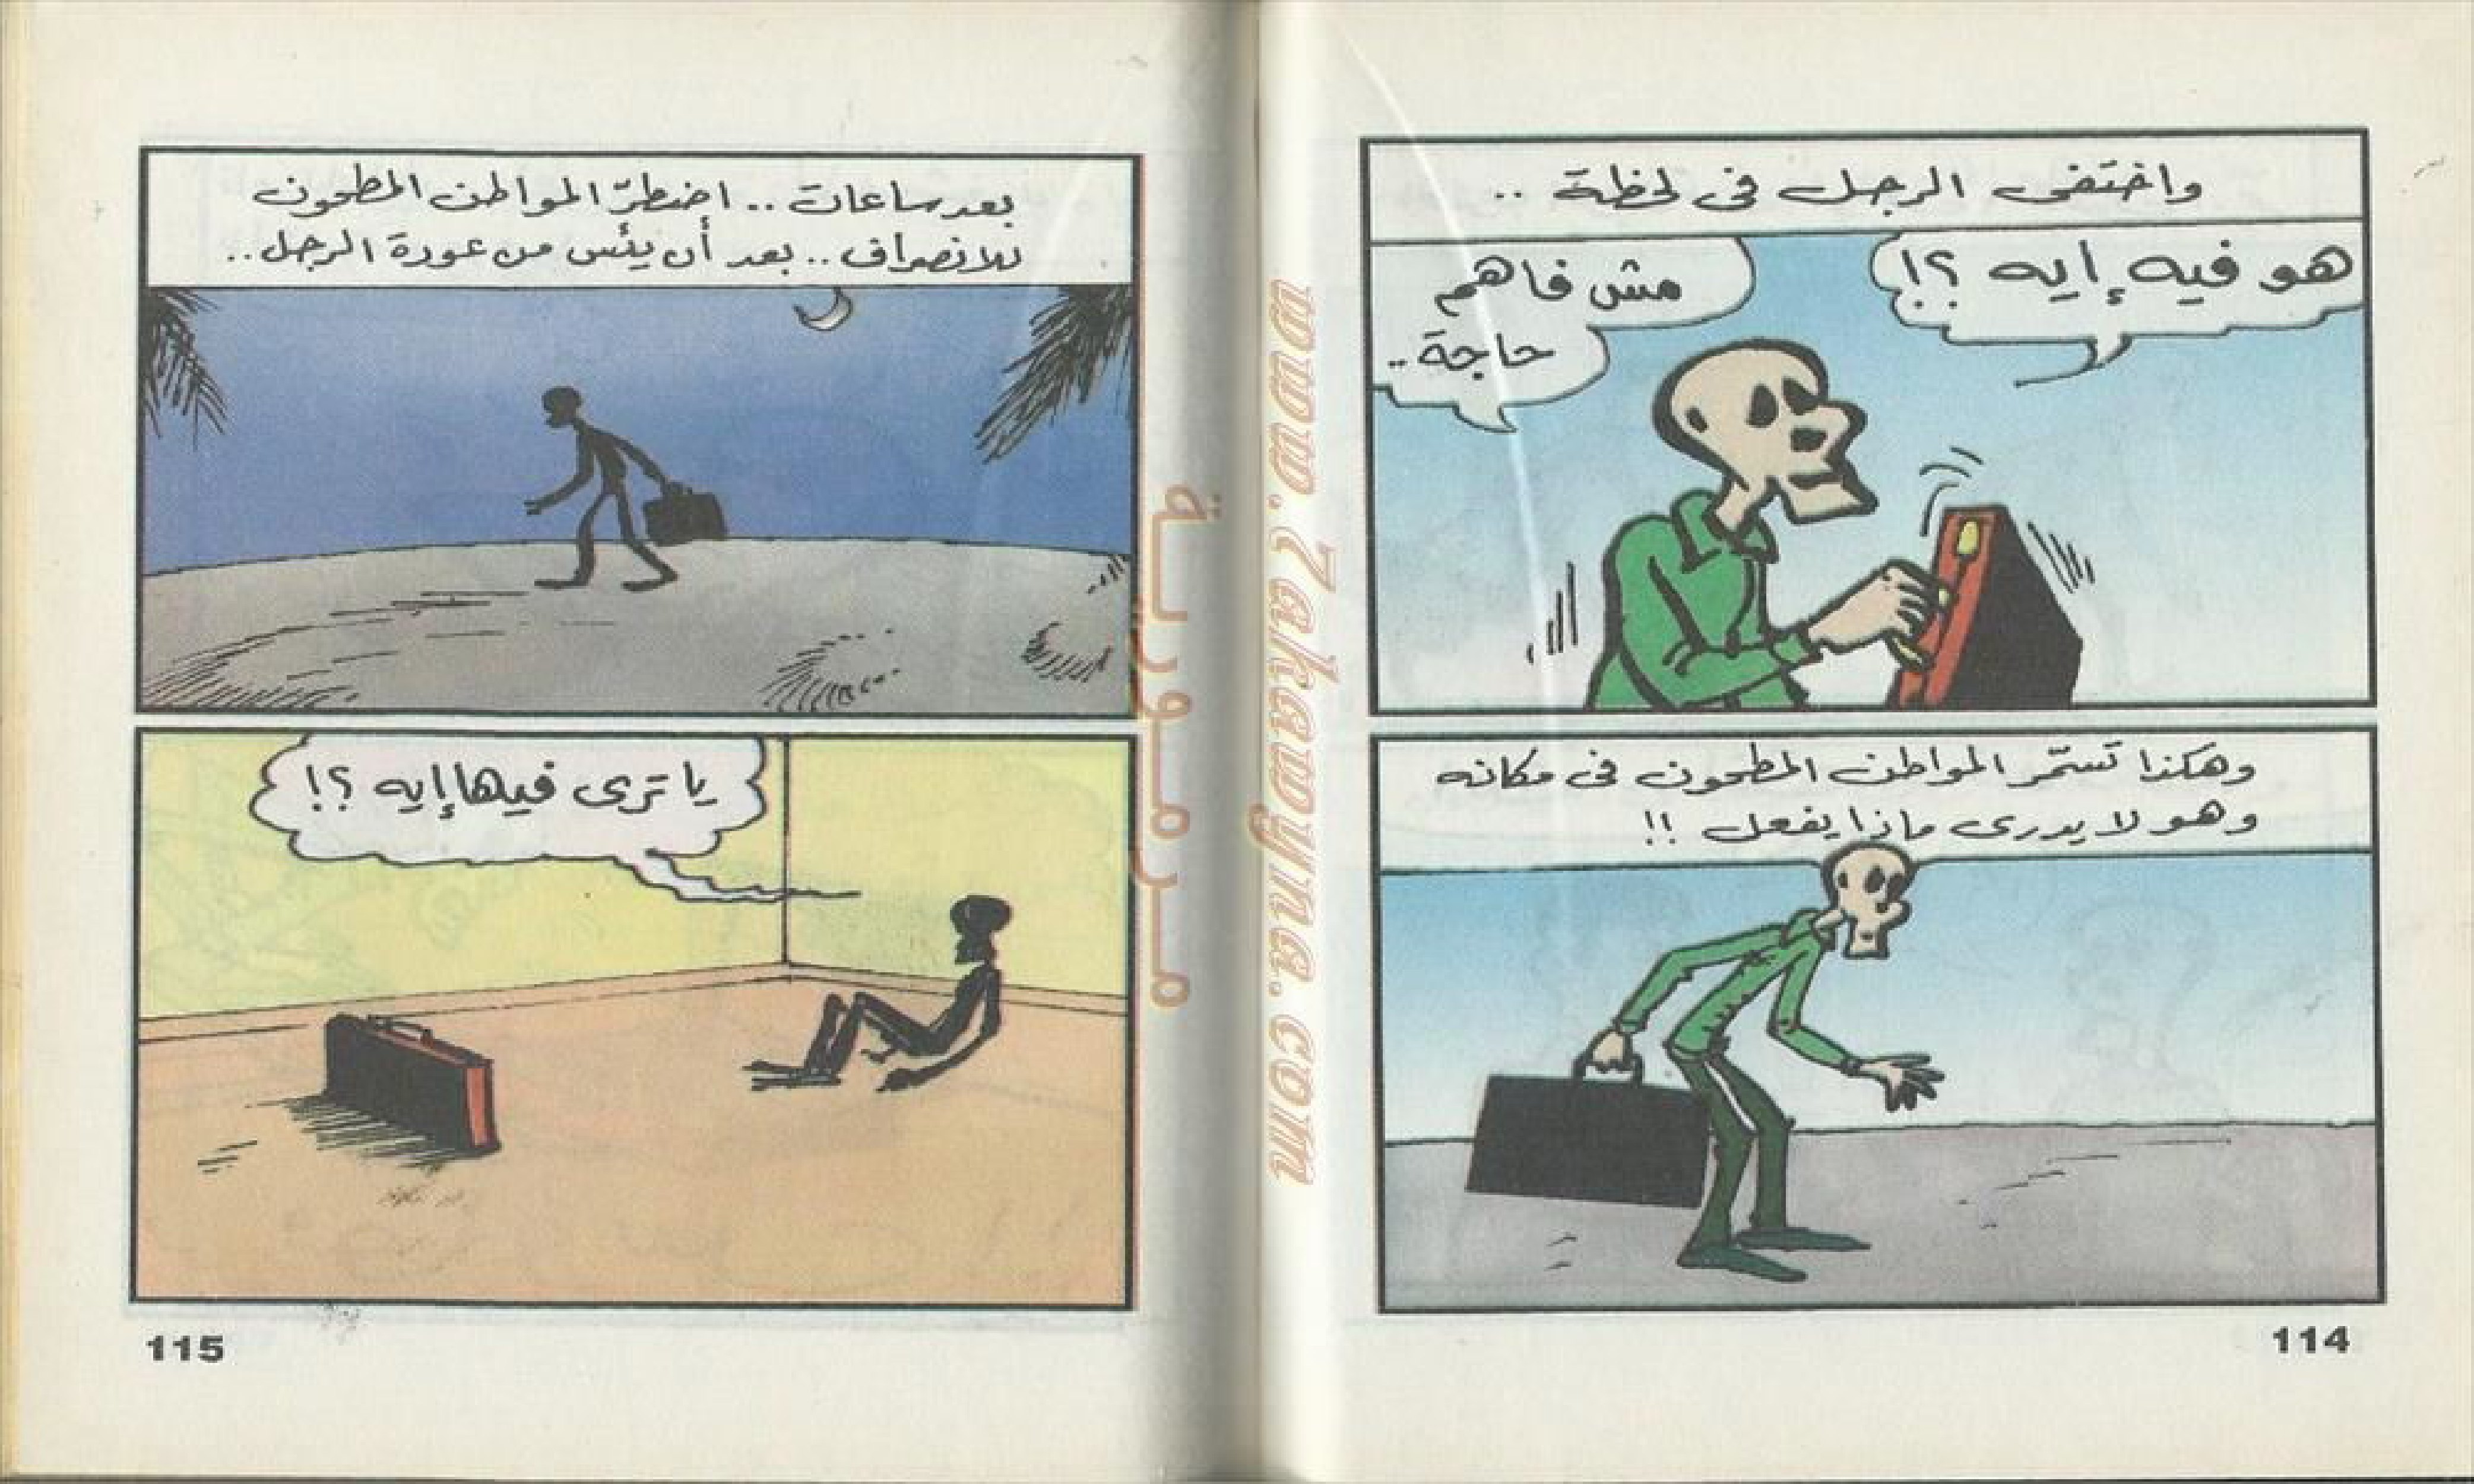 واختفى الرجل فى لحظة ..
هو فيه إيه ؟!
مش فاهم
حاجة ..
وهكذا تسمّر المواطن المطحون فى مكانه
وهو لا يدرى ماذا يفعل !!
114
بعد ساعات .. اضطرّ المواطن المطحون
للانصراف .. بعد أن يئس من عودة الرجل ..
يا ترى فيها إيه ؟!
115
مرمورية
www.7akawyna.com